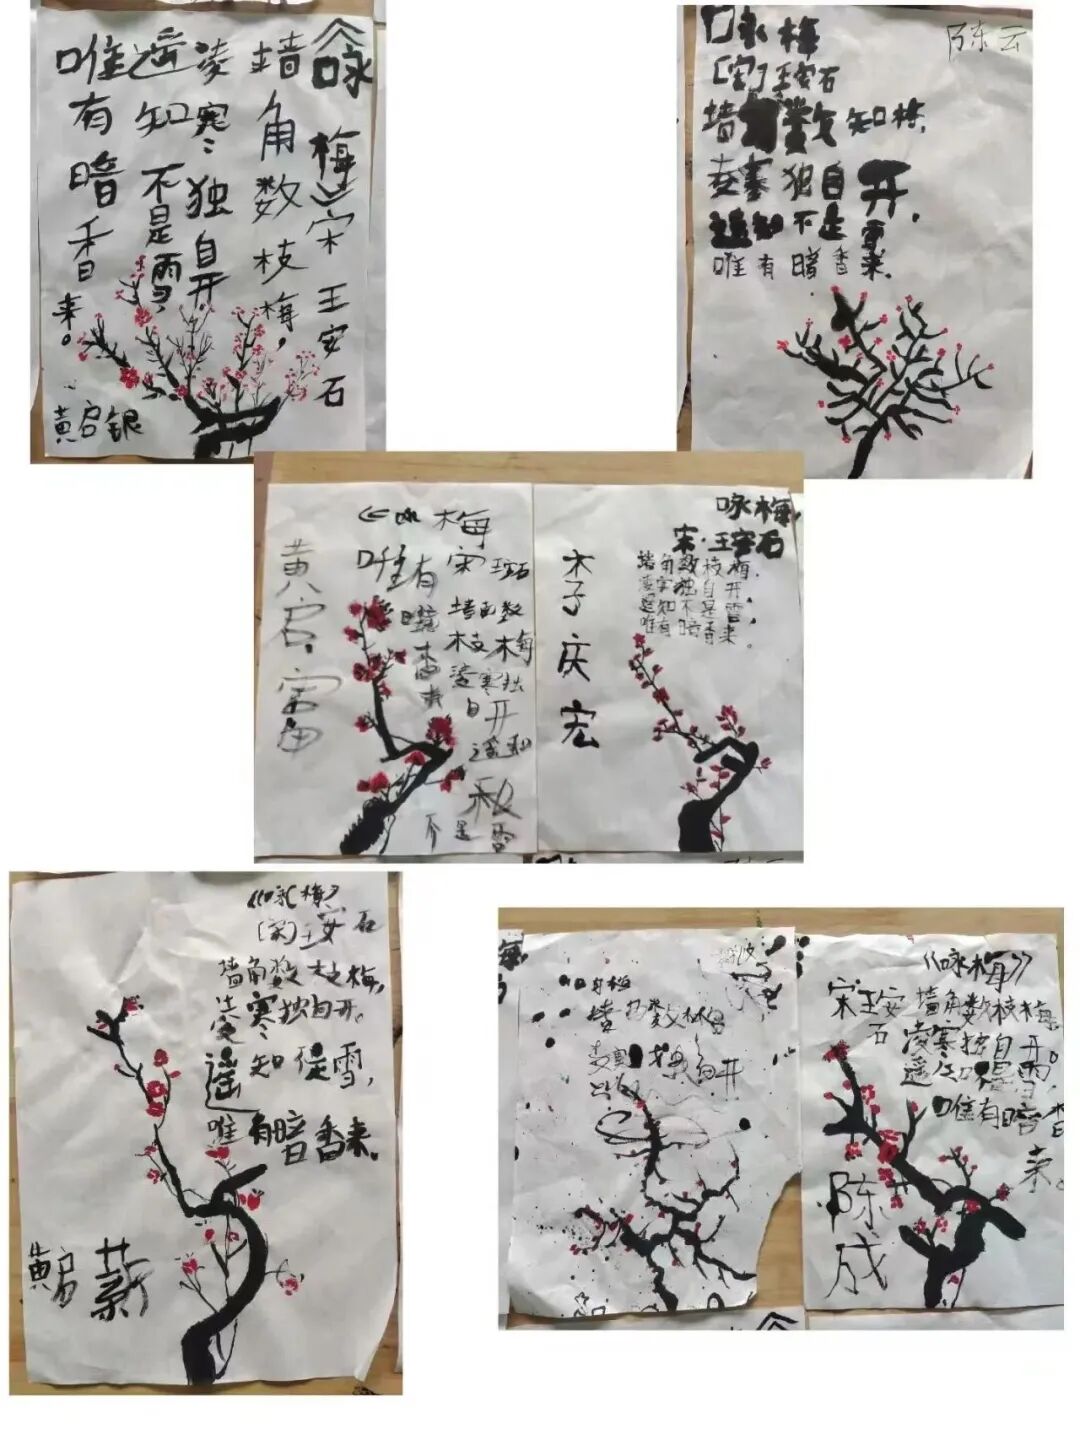 《咏
梅》宋 王安石
墙角数枝梅，
凌寒独自开。
遥知不是雪，
唯有暗香来。
黄启银
陈云
咏梅
[宋]王安石
墙 数 知梅，
寒独自开，
遥知不是雪
唯有暗香来。
黄启富
梅
宋 王安石
墙角数
枝梅
凌寒独
自开
遥知
不是雪
唯有
暗香来
咏梅，
宋·王安石
墙角数枝梅，
凌寒独自开，
遥知不是雪，
唯有暗香来。
木子庆宏
《咏梅》
[宋]王安石
墙角数枝梅，
凌寒独自开。
遥知是雪，
唯有暗香来。
黄启薪
梅
墙 数
自开
《咏梅》
宋王安石
墙角数枝梅，
凌寒独自开。
遥知不是雪，
唯有暗香来。
陈成